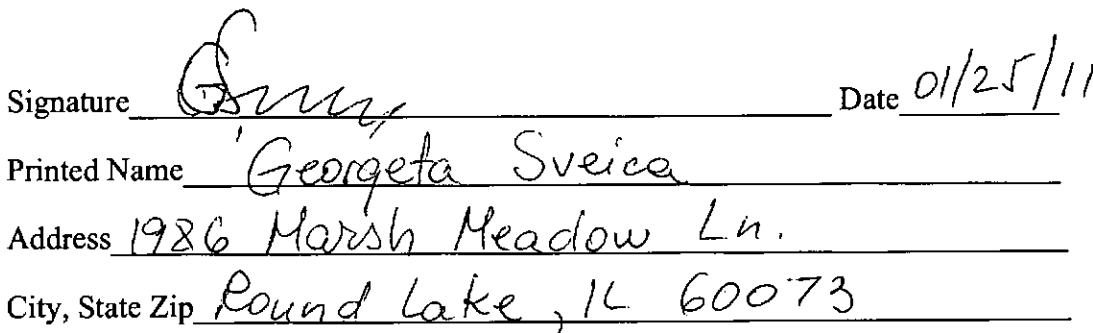 Signature Date 01/25/11
Printed Name Georgeta Sveica
Address 1986 Marsh Meadow Ln.
City, State Zip Round Lake, IL 60073